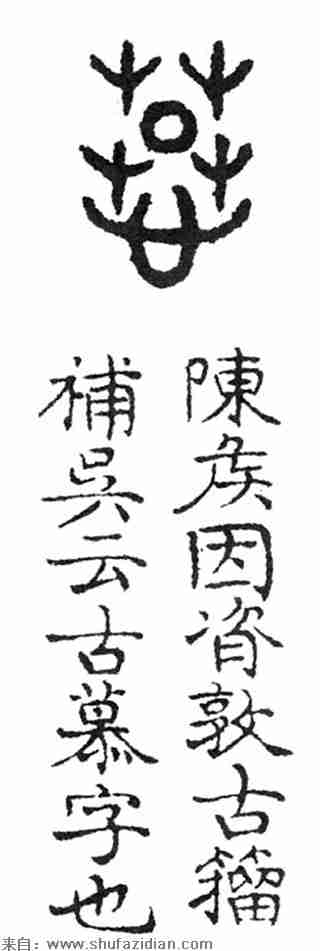 陳矦因敦古籀
補吳云古慕字也
来自：www.shufazidian.com